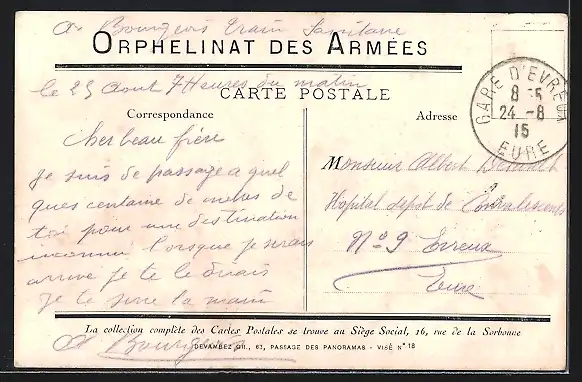 A Bourgeois train Sanitaire
ORPHELINAT DES ARMÉES
le 25 Aout 7 Heures du matin
CARTE POSTALE
Correspondance
Adresse
GARE D'EVREUX
8
24 -8
15
EURE
Cher beau frère
je suis de passage a quel
ques centaine de metres de
toi pour une destination
inconnu lorsque je serais
arrive je te le dirais
je te serre la main
A Bourgeois
Monsieur Albert
Hopital depot de Convalescents
No 9 Evreux
Eure
La collection complète des Cartes Postales se trouve au Siège Social, 16, rue de la Sorbonne
DEVAMBEZ GR., 63, PASSAGE DES PANORAMAS - VISÉ N° 18